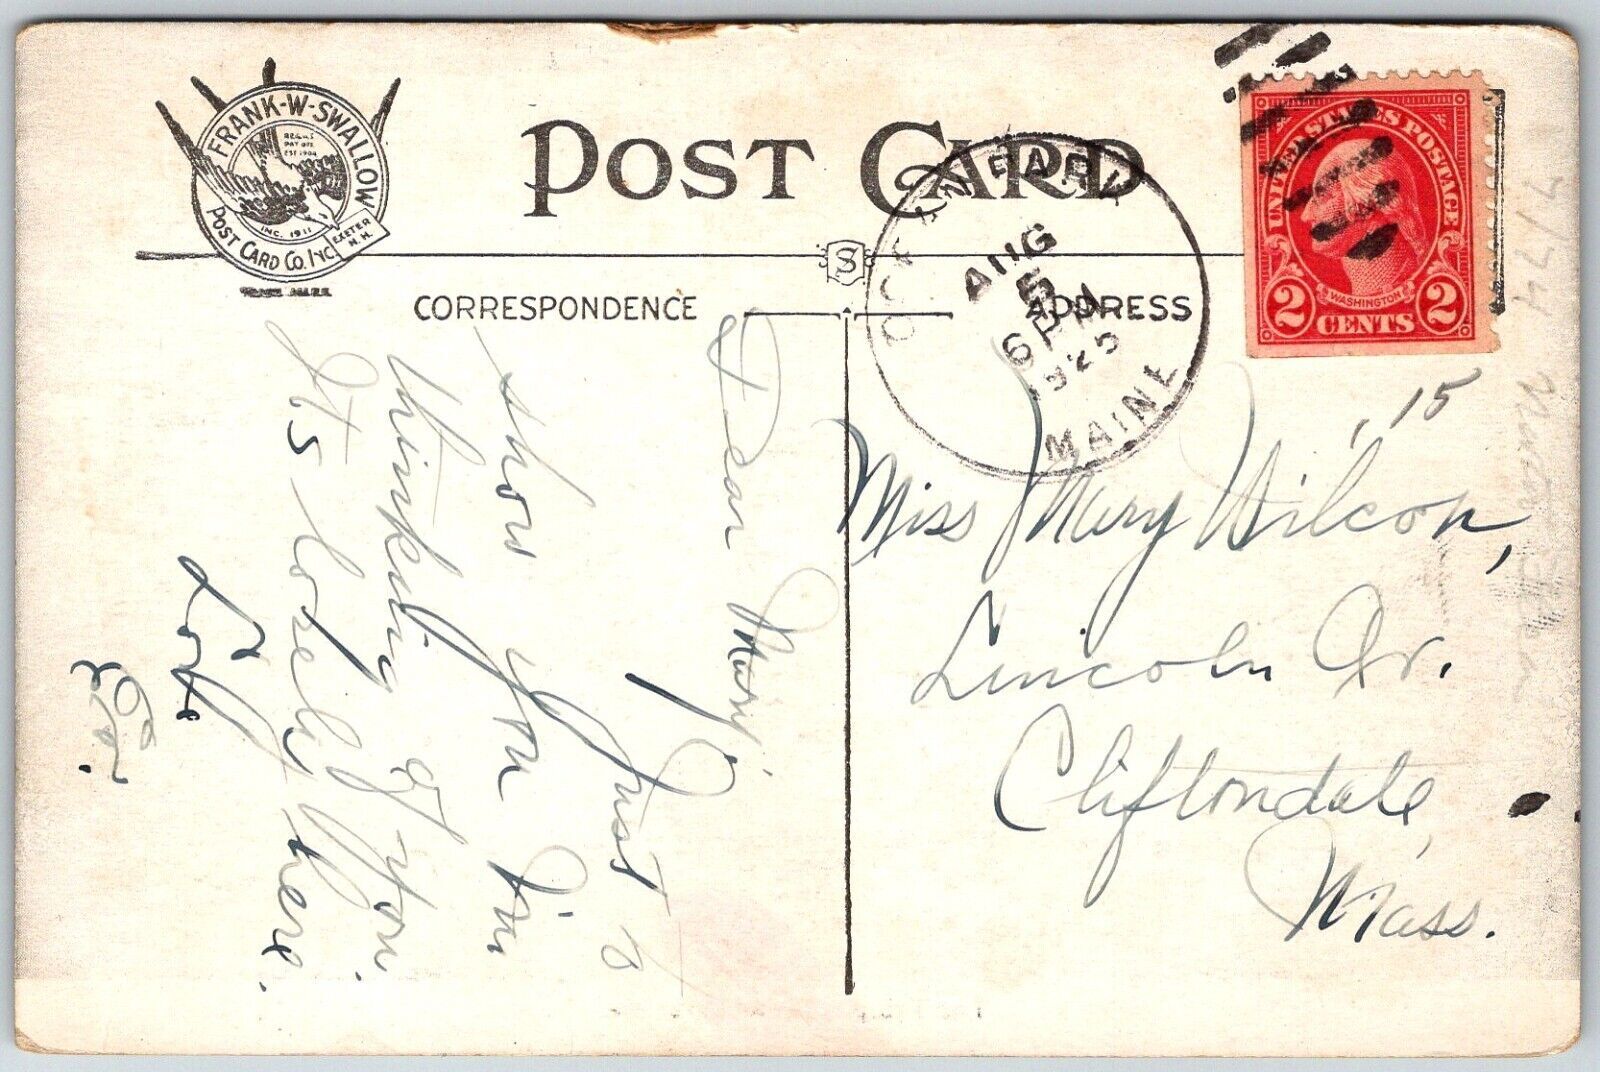 FRANK-W-SWALLOW
REG.U.S.
PAT OFF.
EST 1904
INC. 1911
POST CARD CO. INC.
EXETER
N.H.
TRADE MARK
POST CARD
S
CORRESPONDENCE
ADDRESS
OCEAN PARK
AUG
5
6 PM
925
MAINE
UNITED STATES POSTAGE
WASHINGTON
2 CENTS 2
.15
Miss Mary Wilcox,
Lincoln Av.
Cliftondale,
Mass.
Dear Mary,
Just to
show you I'm
thinking of you.
It's lovely here.
Love